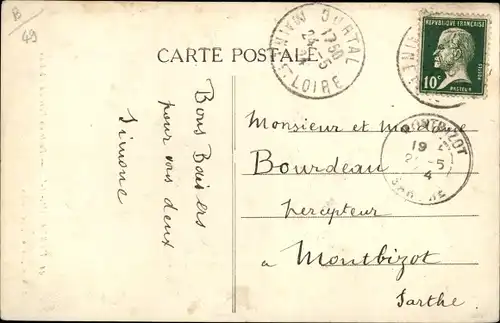 B
49
CARTE POSTALE
DURTAL
17 50
24 -5
24
MAINE-ET-LOIRE
REPUBLIQUE FRANÇAISE
10c
POSTES
PASTEUR
MONTBIZOT
19
2 -5
4
SARTHE
Bons Baisers
pour vous deux
Simone
Monsieur et madame
Bourdeau
percepteur
a Montbizot
Sarthe.